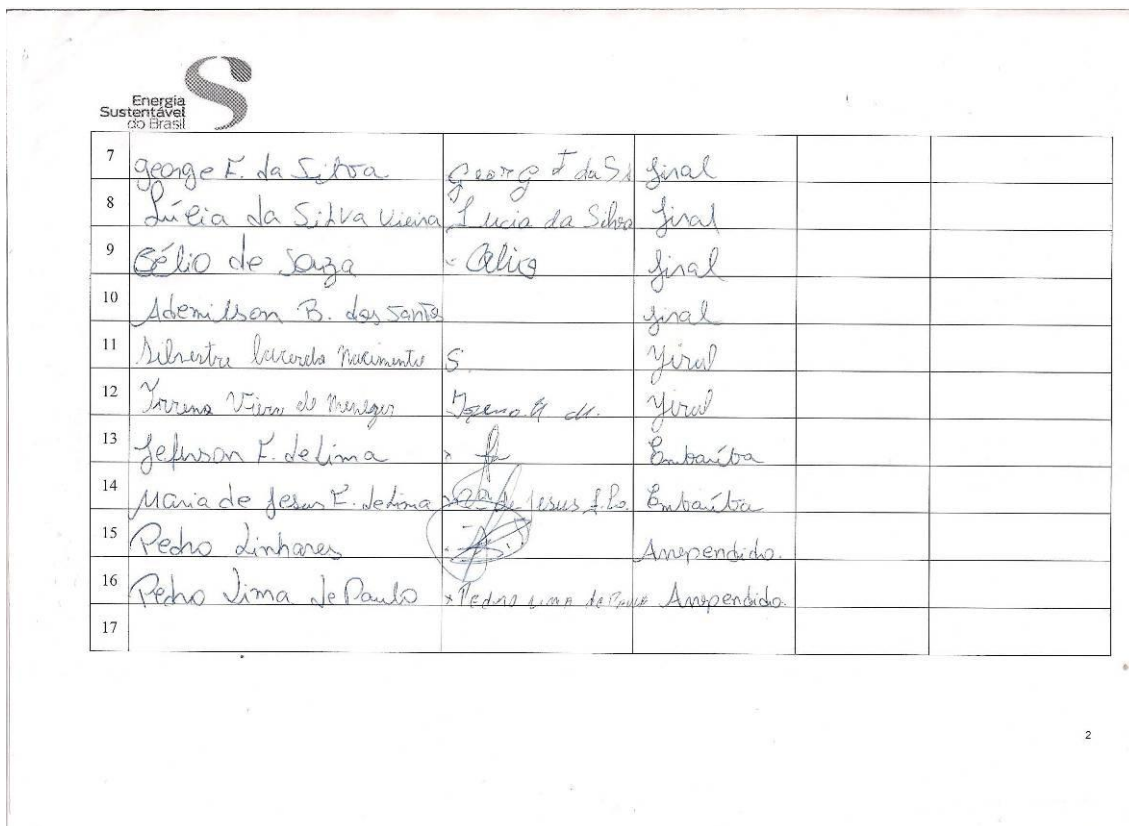 Energia
Sustentável
do Brasil
7 George F. da Silva Georg F da Si Jiral
8 Lúcia da Silva Vieira Lucia da Silva Jiral
9 Célio de Souza Celio Jiral
10 Ademilson B. dos Santos Jiral
11 Silvestre Lacerda Nacimento S. Yiral
12 Vieira de Menezes Yiral
13 Jeferson F. de Lima Embaúba
14 Maria de Jesus F. de Lima de Jesus Embaúba
15 Pedro Linhares Arrependido.
16 Pedro Lima de Paulo Pedro Lima de Paulo Arrependido.
17
2